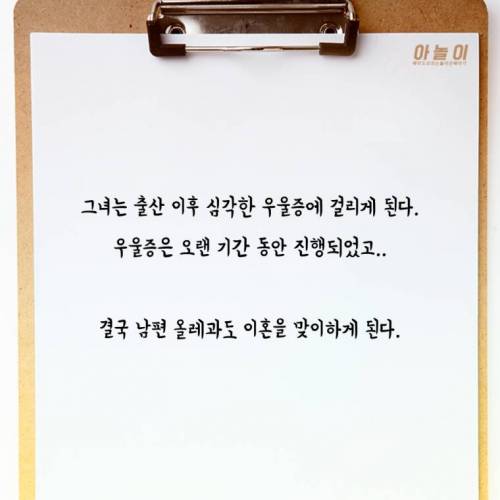 아놀이
그녀는 출산 이후 심각한 우울증에 걸리게 된다.
우울증은 오랜 기간 동안 진행되었고..
결국 남편 올레과도 이혼을 맞이하게 된다.